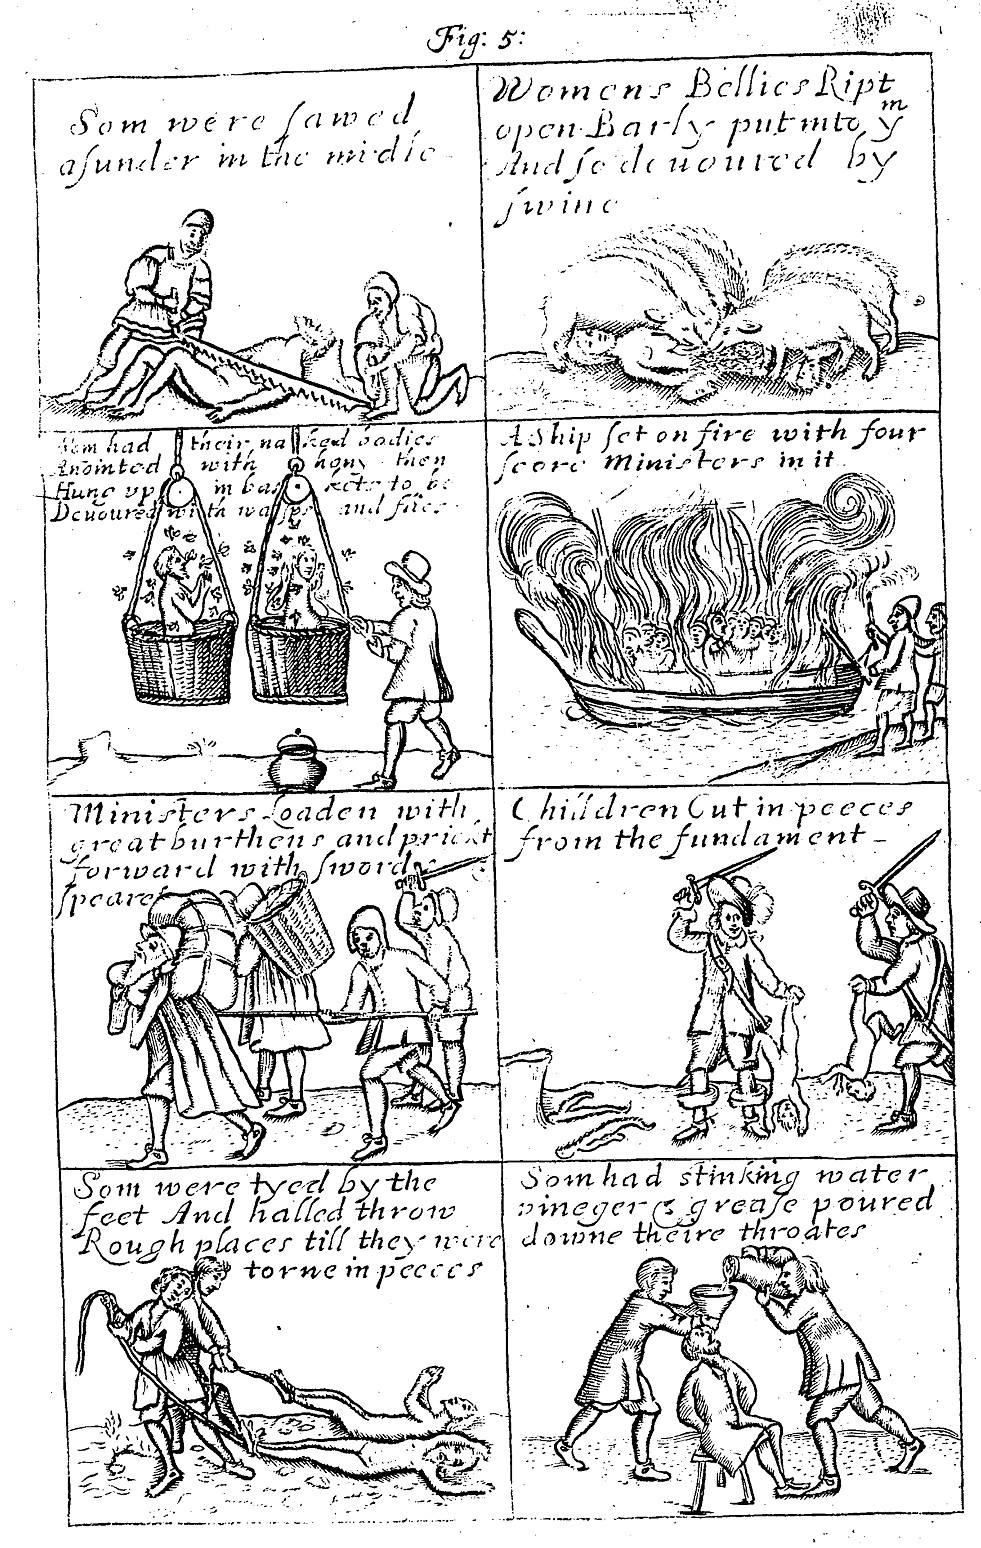 Fig: 5:
Som were sawed
asunder in the midle
Womens Bellies Ript
open Barly put into yᵐ
And so devoured by
swine
Som had their naked bodies
Anointed with hony then
Hung up in baskets to be
Devoured with wasps and flies
A Ship set on fire with four
score Ministers in it
Ministers Loaden with
great burthens and prickt
forward with swords
speares
Children Cut in peeces
from the fundament
Som were tyed by the
feet And halled throw
Rough places till they were
torne in peeces
Som had stinking water
vineger & grease poured
downe theire throates